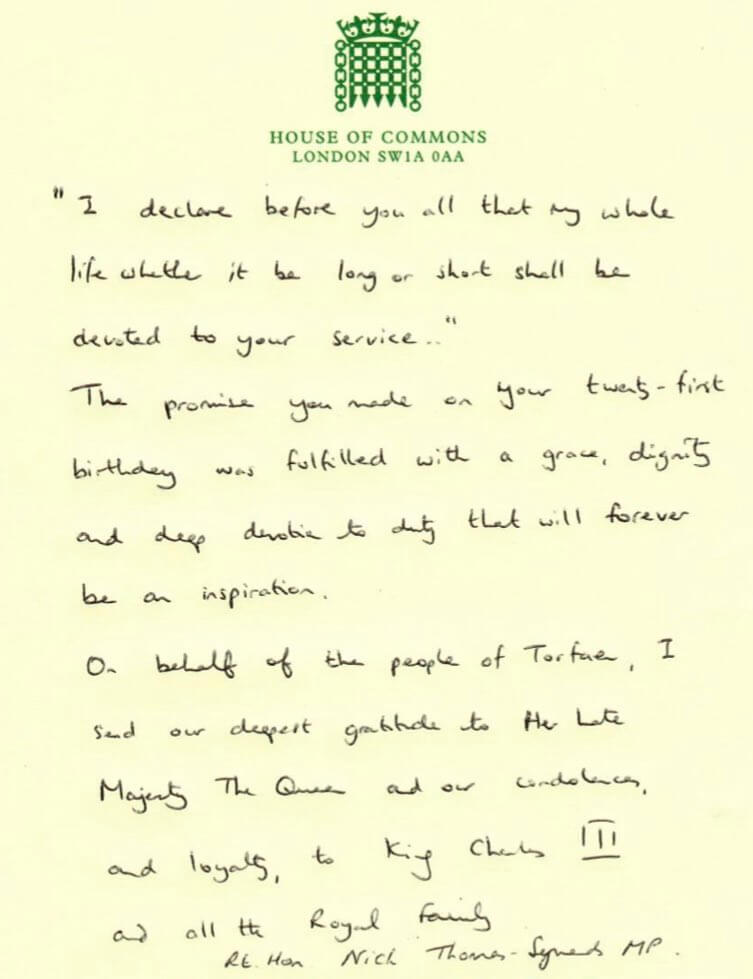 HOUSE OF COMMONS
LONDON SW1A 0AA
"I declare before you all that my whole
life whether it be long or short shall be
devoted to your service.."
The promise you made on your twenty-first
birthday was fulfilled with a grace, dignity
and deep devotion to duty that will forever
be an inspiration.
On behalf of the people of Torfaen, I
send our deepest gratitude to Her Late
Majesty The Queen and our condolences,
and loyalty, to King Charles III
and all the Royal Family
Rt. Hon Nick Thomas-Symonds MP.